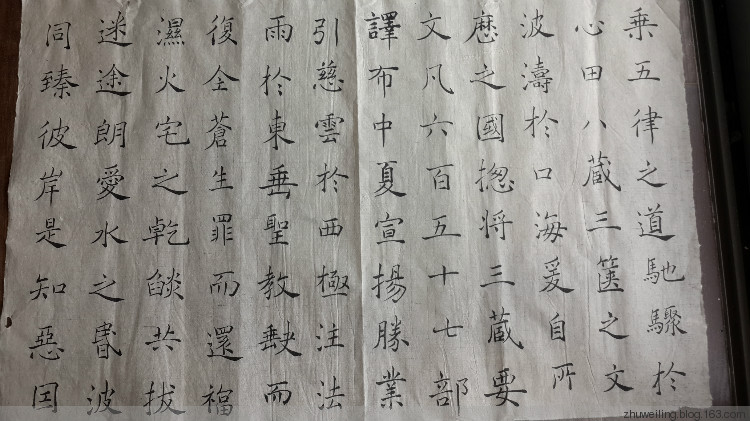 乗五律之道馳驟於
心田八蔵三篋之文
波濤於口海爰自所
歷之國揔將三蔵要
文凡六百五十七部
譯布中夏宣揚勝業
引慈雲於西極注法
雨於東垂聖教缺而
復全蒼生罪而還福
濕火宅之乾燄共拔
迷途朗愛水之昬波
同臻彼岸是知惡因
zhuweiling.blog.163.com